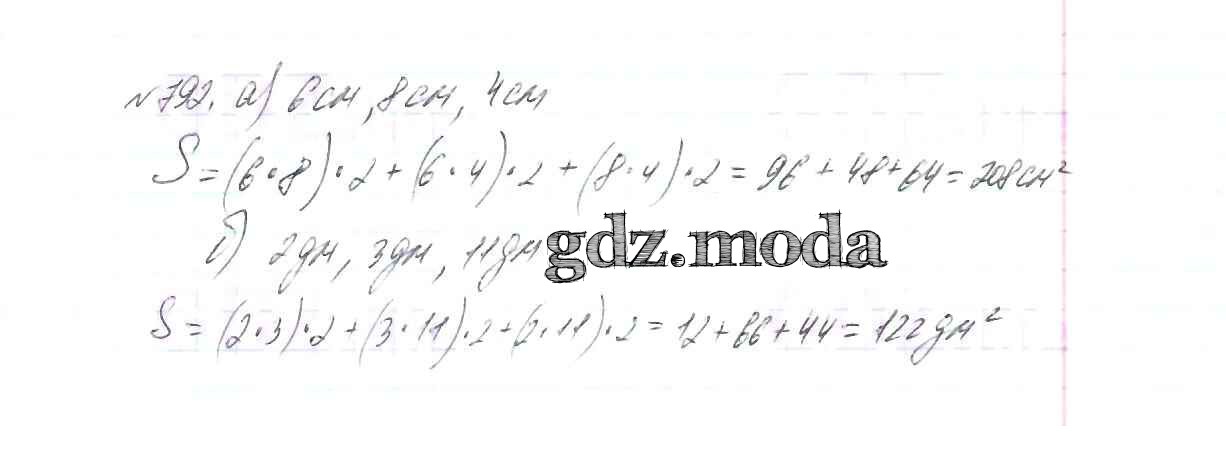 №792. а) 6см, 8см, 4см
S = (6·8)·2 + (6·4)·2 + (8·4)·2 = 96 + 48 + 64 = 208см²
б) 2дм, 3дм, 11дм
gdz.moda
S = (2·3)·2 + (3·11)·2 + (2·11)·2 = 12 + 66 + 44 = 122дм²